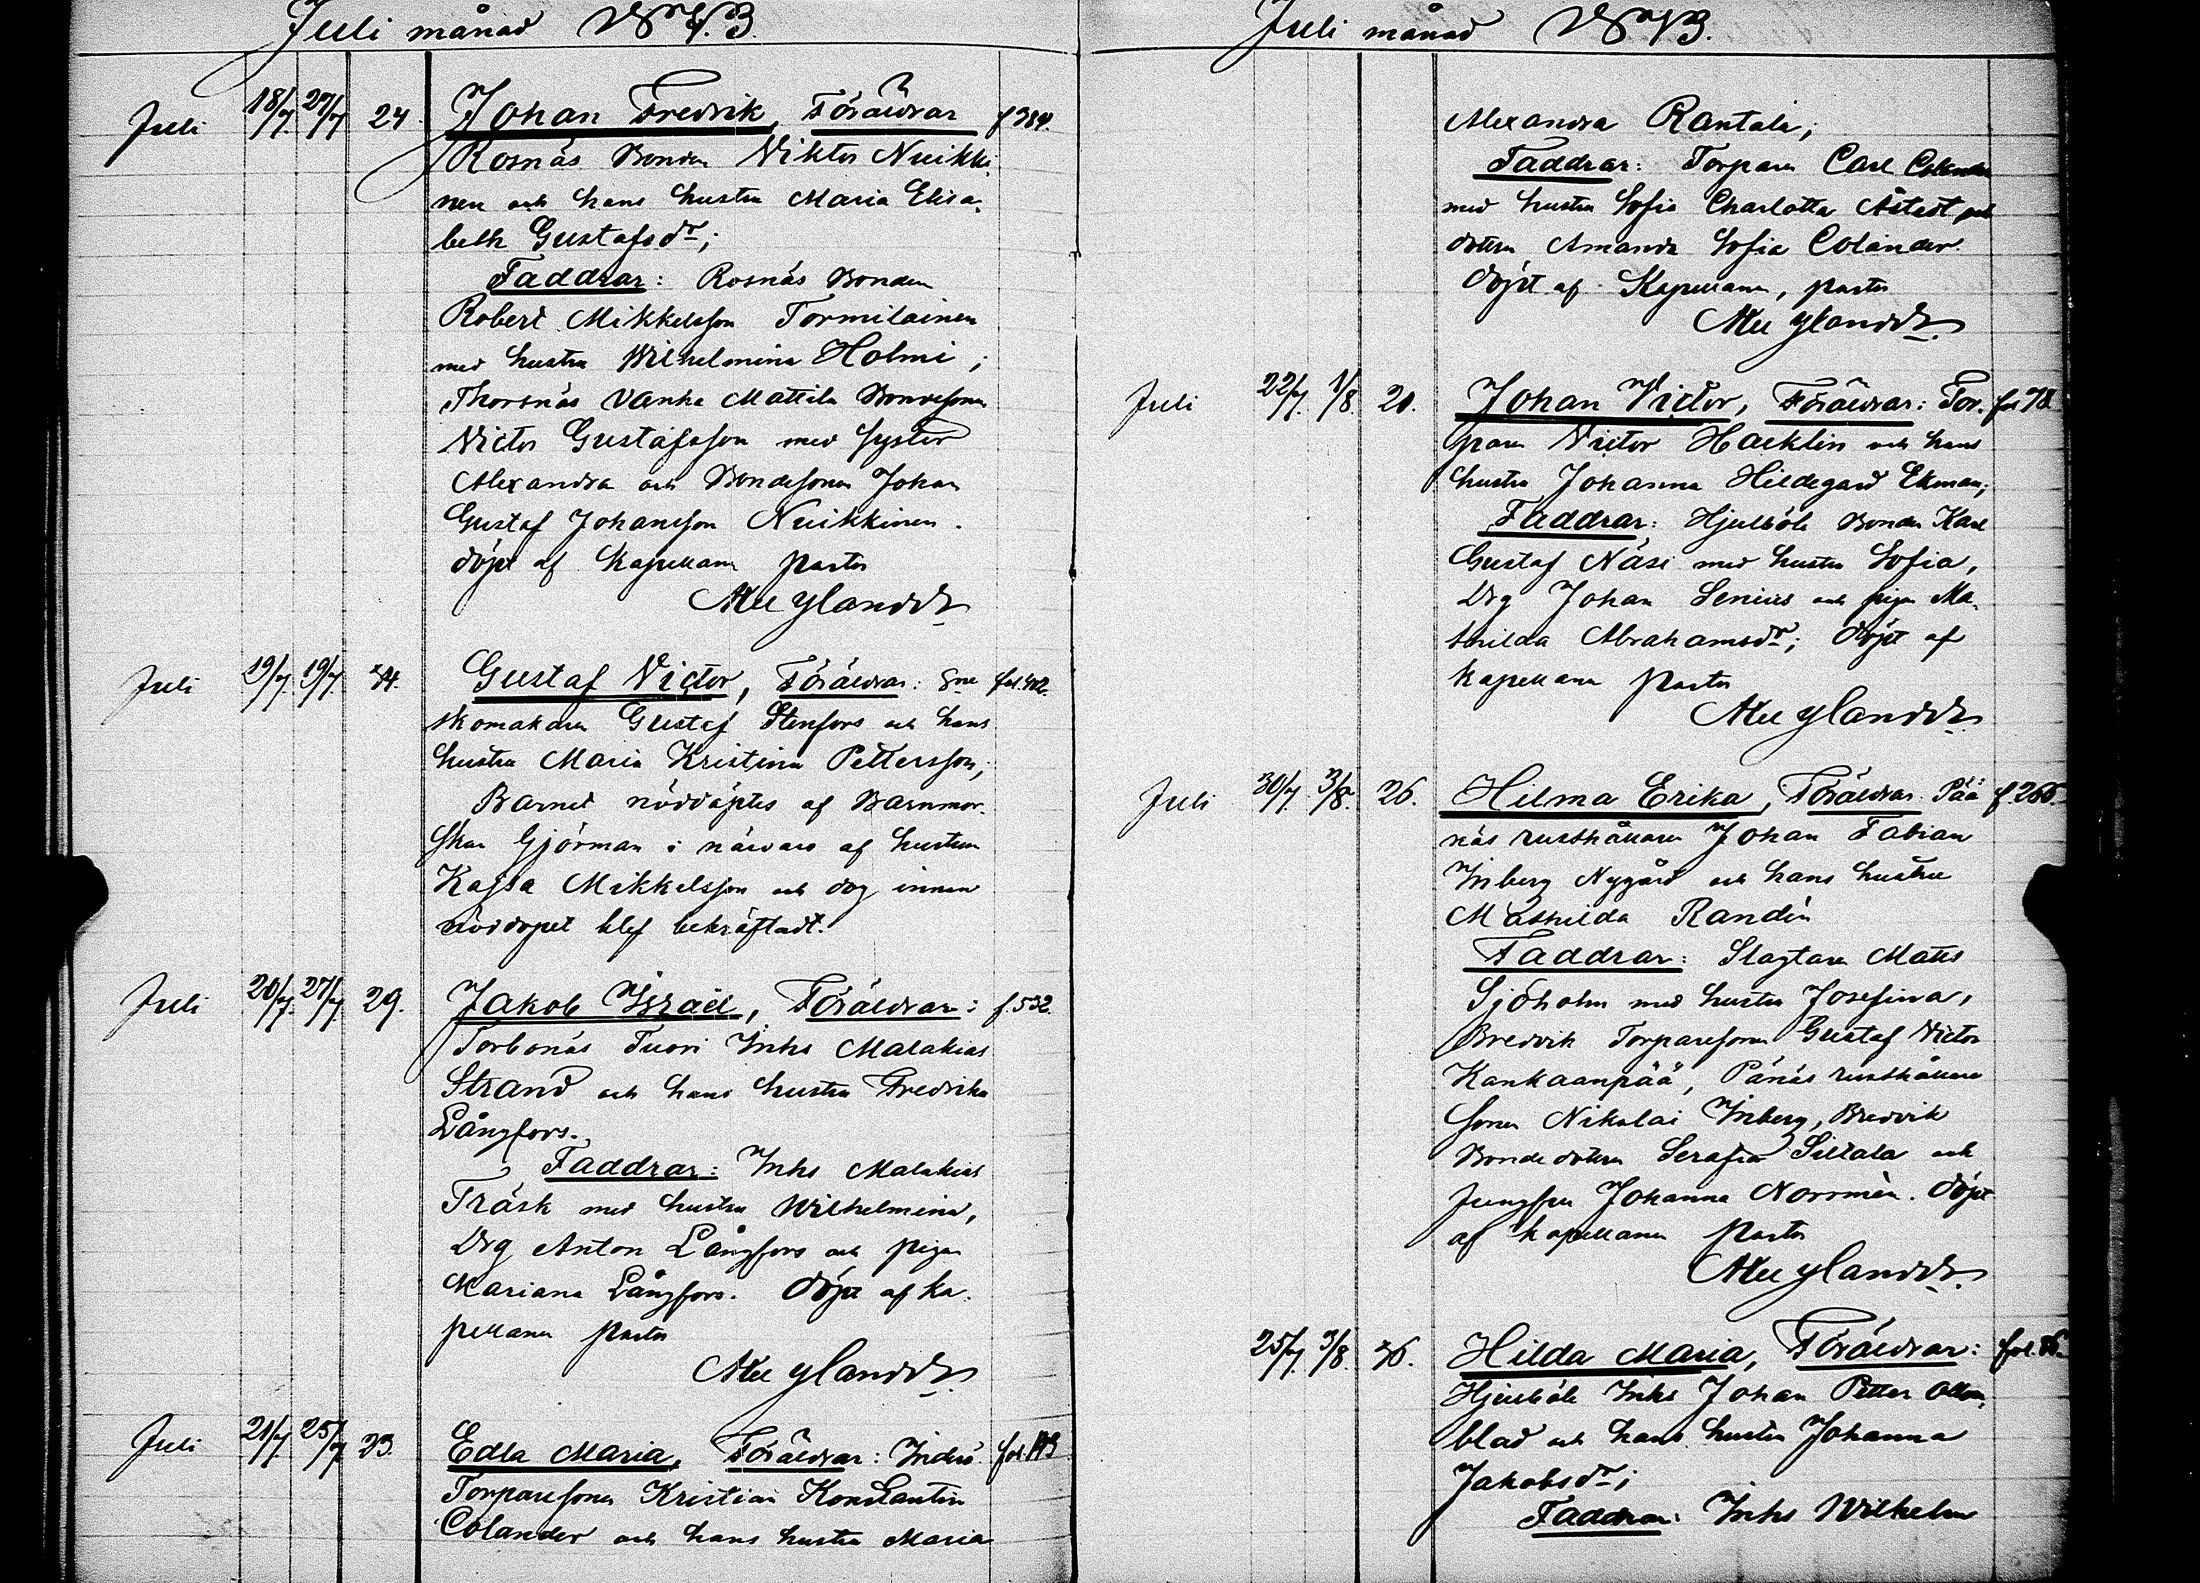 Juli månad 1873.
Juli 18/7. 27/7 24. Johan Fredrik, Föräldrar f 384.
Rosnäs Bonden Viktor Nuikki-
nen och hans hustru Maria Elisa-
beth Gustafsdr;
Faddrar: Rosnäs Bonden
Robert Mikkelsson Tormilainen
med hustru Wilhelmina Holmi;
Thorsnäs Vanha Mattila Bondesonen
Victor Gustafsson med syster
Alexandra och Bondesonen Johan
Gustaf Johansson Nuikkinen.
döpt af Kapellanen pastor
Juli 19/7. 19/7. Gustaf Victor, Föräldrar:
skomakaren Gustaf Stenfors och hans
hustru Maria Kristina Pettersson;
Barnet nöddöptes af Barnmor-
skan Gjörman i närvaro af hustrun
Kajsa Mikkelsson och dog innan
nöddopet blef bekräftadt.
Juli 20/7. 27/7 29. Jakob Israel, Föräldrar: f. 532.
Torbonäs Tuori Inhs Malakias
Strand och hans hustru Fredrika
Långfors.
Faddrar: Inhs Malakias
Träsk med hustru Wilhelmina,
Drg Anton Långfors och pigan
Mariana Långfors. Döpt af Ka-
pellanen pastor
Juli 21/7. 25/7 23. Edla Maria, Föräldrar: Inderö
Torparesonen Kristian Konstantin
Colander och hans hustru Maria
Juli månad 1873.
Alexandra Rantala;
Faddrar: Torparen Carl Colander
med hustru Sofia Charlotta Åstedt och
dottern Amanda Sofia Colander.
Döpt af Kapellanen, pastor
Juli 22/7. 1/8 20. Johan Victor, Föräldrar: Tor- fol 78.
paren Victor Hacklin och hans
hustru Johanna Hildegard Ekman;
Faddrar: Hjulböle Bonden Karl
Gustaf Näsi med hustru Sofia,
Drg Johan Senius och pigan Ma-
thilda Abrahamsdr; Döpt af
kapellanen pastor
Juli 30/7. 3/8. 26. Hilma Erika, Föräldrar: Påå-
näs rusthållaren Johan Fabian
Inberg Nygård och hans hustru
Mathilda Randén
Faddrar: Slagtaren Matts
Sjöholm med hustru Josefina,
Bredvik Torparesonen Gustaf Victor
Kankaanpää, Pånäs rusthållare
sonen Nikolai Inberg, Bredvik
Bondedottren Serafia Siltala och
jungfru Johanna Norrmén. Döpt
af kapellanen pastor
25/7. 3/8. Hilda Maria, Föräldrar:
Hjulböle Inhs Johan Petter
blad och hans hustru Johanna
Jakobsdr;
Faddrar: Inhs Wilhelm